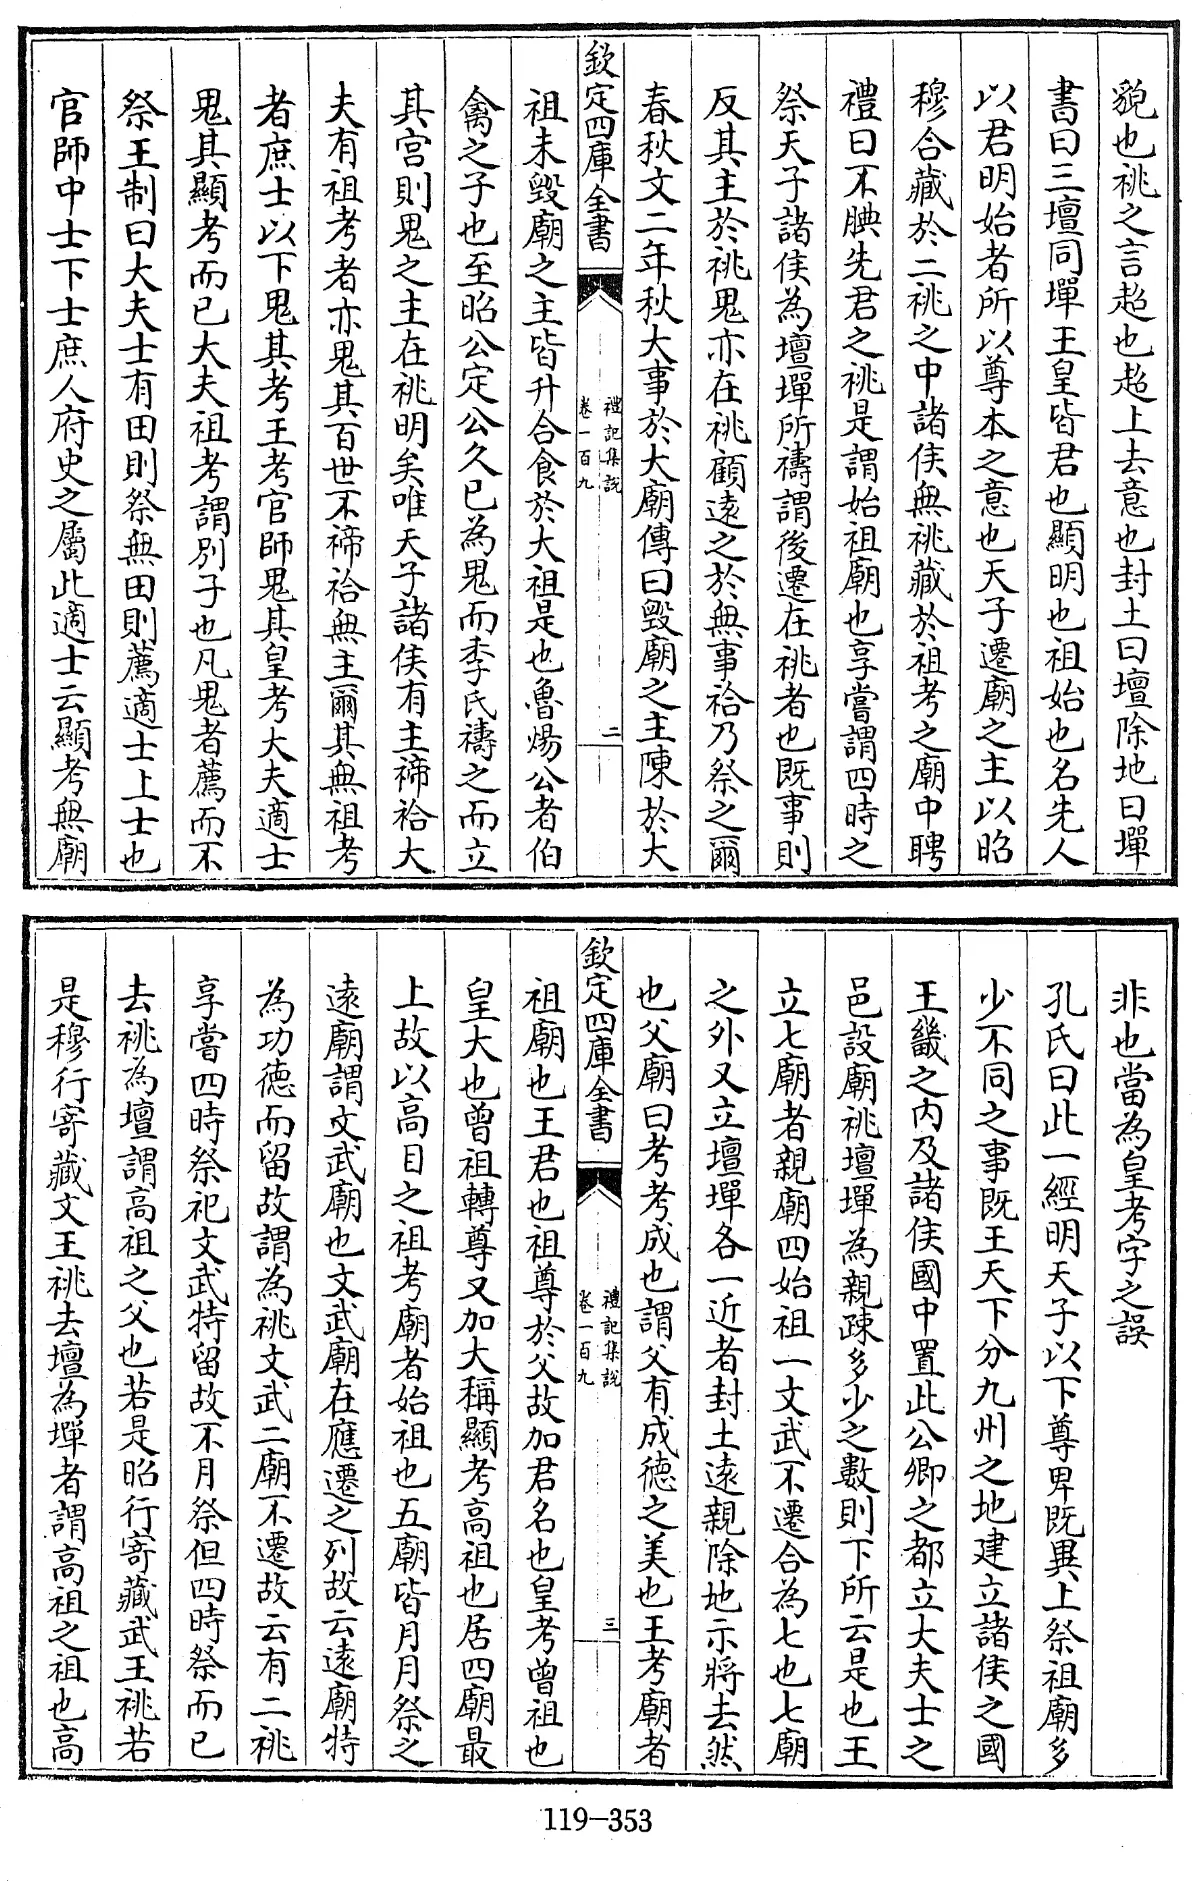 貌也祧之言超也超上去意也封土曰壇除地曰墠
書曰三壇同墠王皇皆君也顯明也祖始也名先人
以君明始者所以尊本之意也天子遷廟之主以昭
穆合藏於二祧之中諸侯無祧藏於祖考之廟中聘
禮曰不腆先君之祧是謂始祖廟也享嘗謂四時之
祭天子諸侯為壇墠所禱謂後遷在祧者也既事則
反其主於祧鬼亦在祧顧遠之於無事祫乃祭之爾
春秋文二年秋大事於大廟傳曰毀廟之主陳於大
欽定四庫全書
禮記集說
卷一百九
二
祖未毀廟之主皆升合食於大祖是也魯煬公者伯
禽之子也至昭公定公久已為鬼而季氏禱之而立
其宫則鬼之主在祧明矣唯天子諸侯有主禘祫大
夫有祖考者亦鬼其百世不禘祫無主爾其無祖考
者庶士以下鬼其考王考官師鬼其皇考大夫適士
鬼其顯考而已大夫祖考謂別子也凡鬼者薦而不
祭王制曰大夫士有田則祭無田則薦適士上士也
官師中士下士庶人府史之屬此適士云顯考無廟
非也當為皇考字之誤
孔氏曰此一經明天子以下尊卑既異上祭祖廟多
少不同之事既王天下分九州之地建立諸侯之國
王畿之内及諸侯國中置此公卿之都立大夫士之
邑設廟祧壇墠為親疎多少之數則下所云是也王
立七廟者親廟四始祖一文武不遷合為七也七廟
之外又立壇墠各一近者封土遠親除地示將去然
也父廟曰考考成也謂父有成徳之美也王考廟者
欽定四庫全書
禮記集說
卷一百九
三
祖廟也王君也祖尊於父故加君名也皇考曾祖也
皇大也曾祖轉尊又加大稱顯考高祖也居四廟最
上故以高目之祖考廟者始祖也五廟皆月月祭之
遠廟謂文武廟也文武廟在應遷之列故云遠廟特
為功徳而留故謂為祧文武二廟不遷故云有二祧
享嘗四時祭祀文武特留故不月祭但四時祭而已
去祧為壇謂高祖之父也若是昭行寄藏武王祧若
是穆行寄藏文王祧去壇為墠者謂高祖之祖也高
119-353